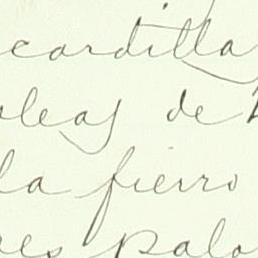 cordilla
oleas de
la fierro
res palo